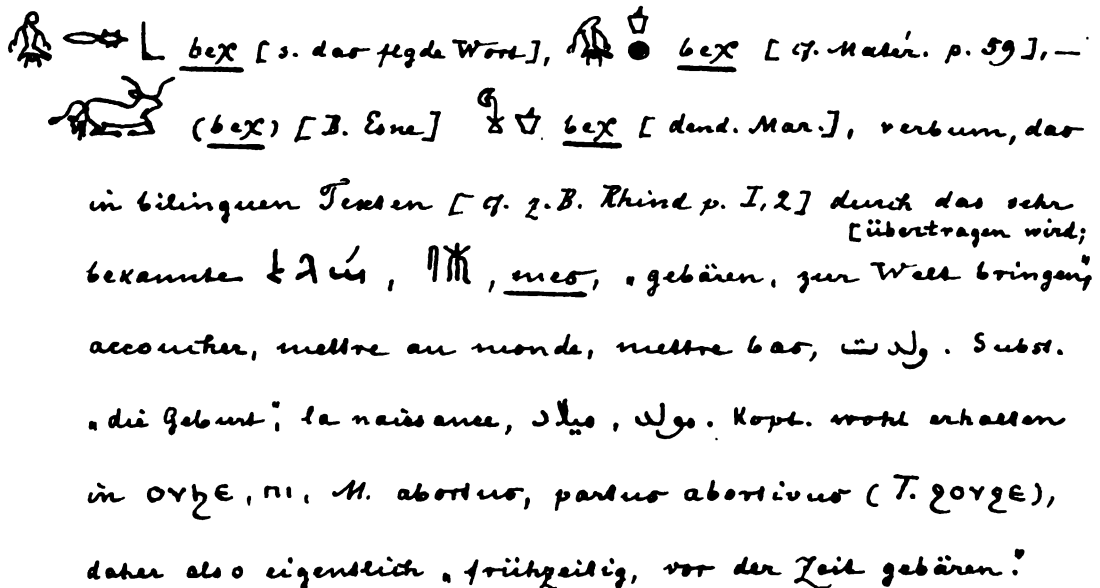 beχ [s. das flgde Wort], beχ [cf. Matér. p. 59], —
(beχ) [B. Esne] beχ [dend. Mar.], verbum, das
in bilinguen Texten [cf. z.B. Rhind p. I, 2] durch das sehr
[übertragen wird;
bekannte , mes, „gebären, zur Welt bringen“,
accoucher, mettre au monde, mettre bas, ولدت. Subst.
„die Geburt“, la naissance, ميلاد, مولد. Kopt. wohl erhalten
in ⲟⲩϧⲉ, ⲡⲓ, M. abortus, partus abortivus (T. ϩⲟⲩϩⲉ),
daher also eigentlich „frühzeitig, vor der Zeit gebären.“